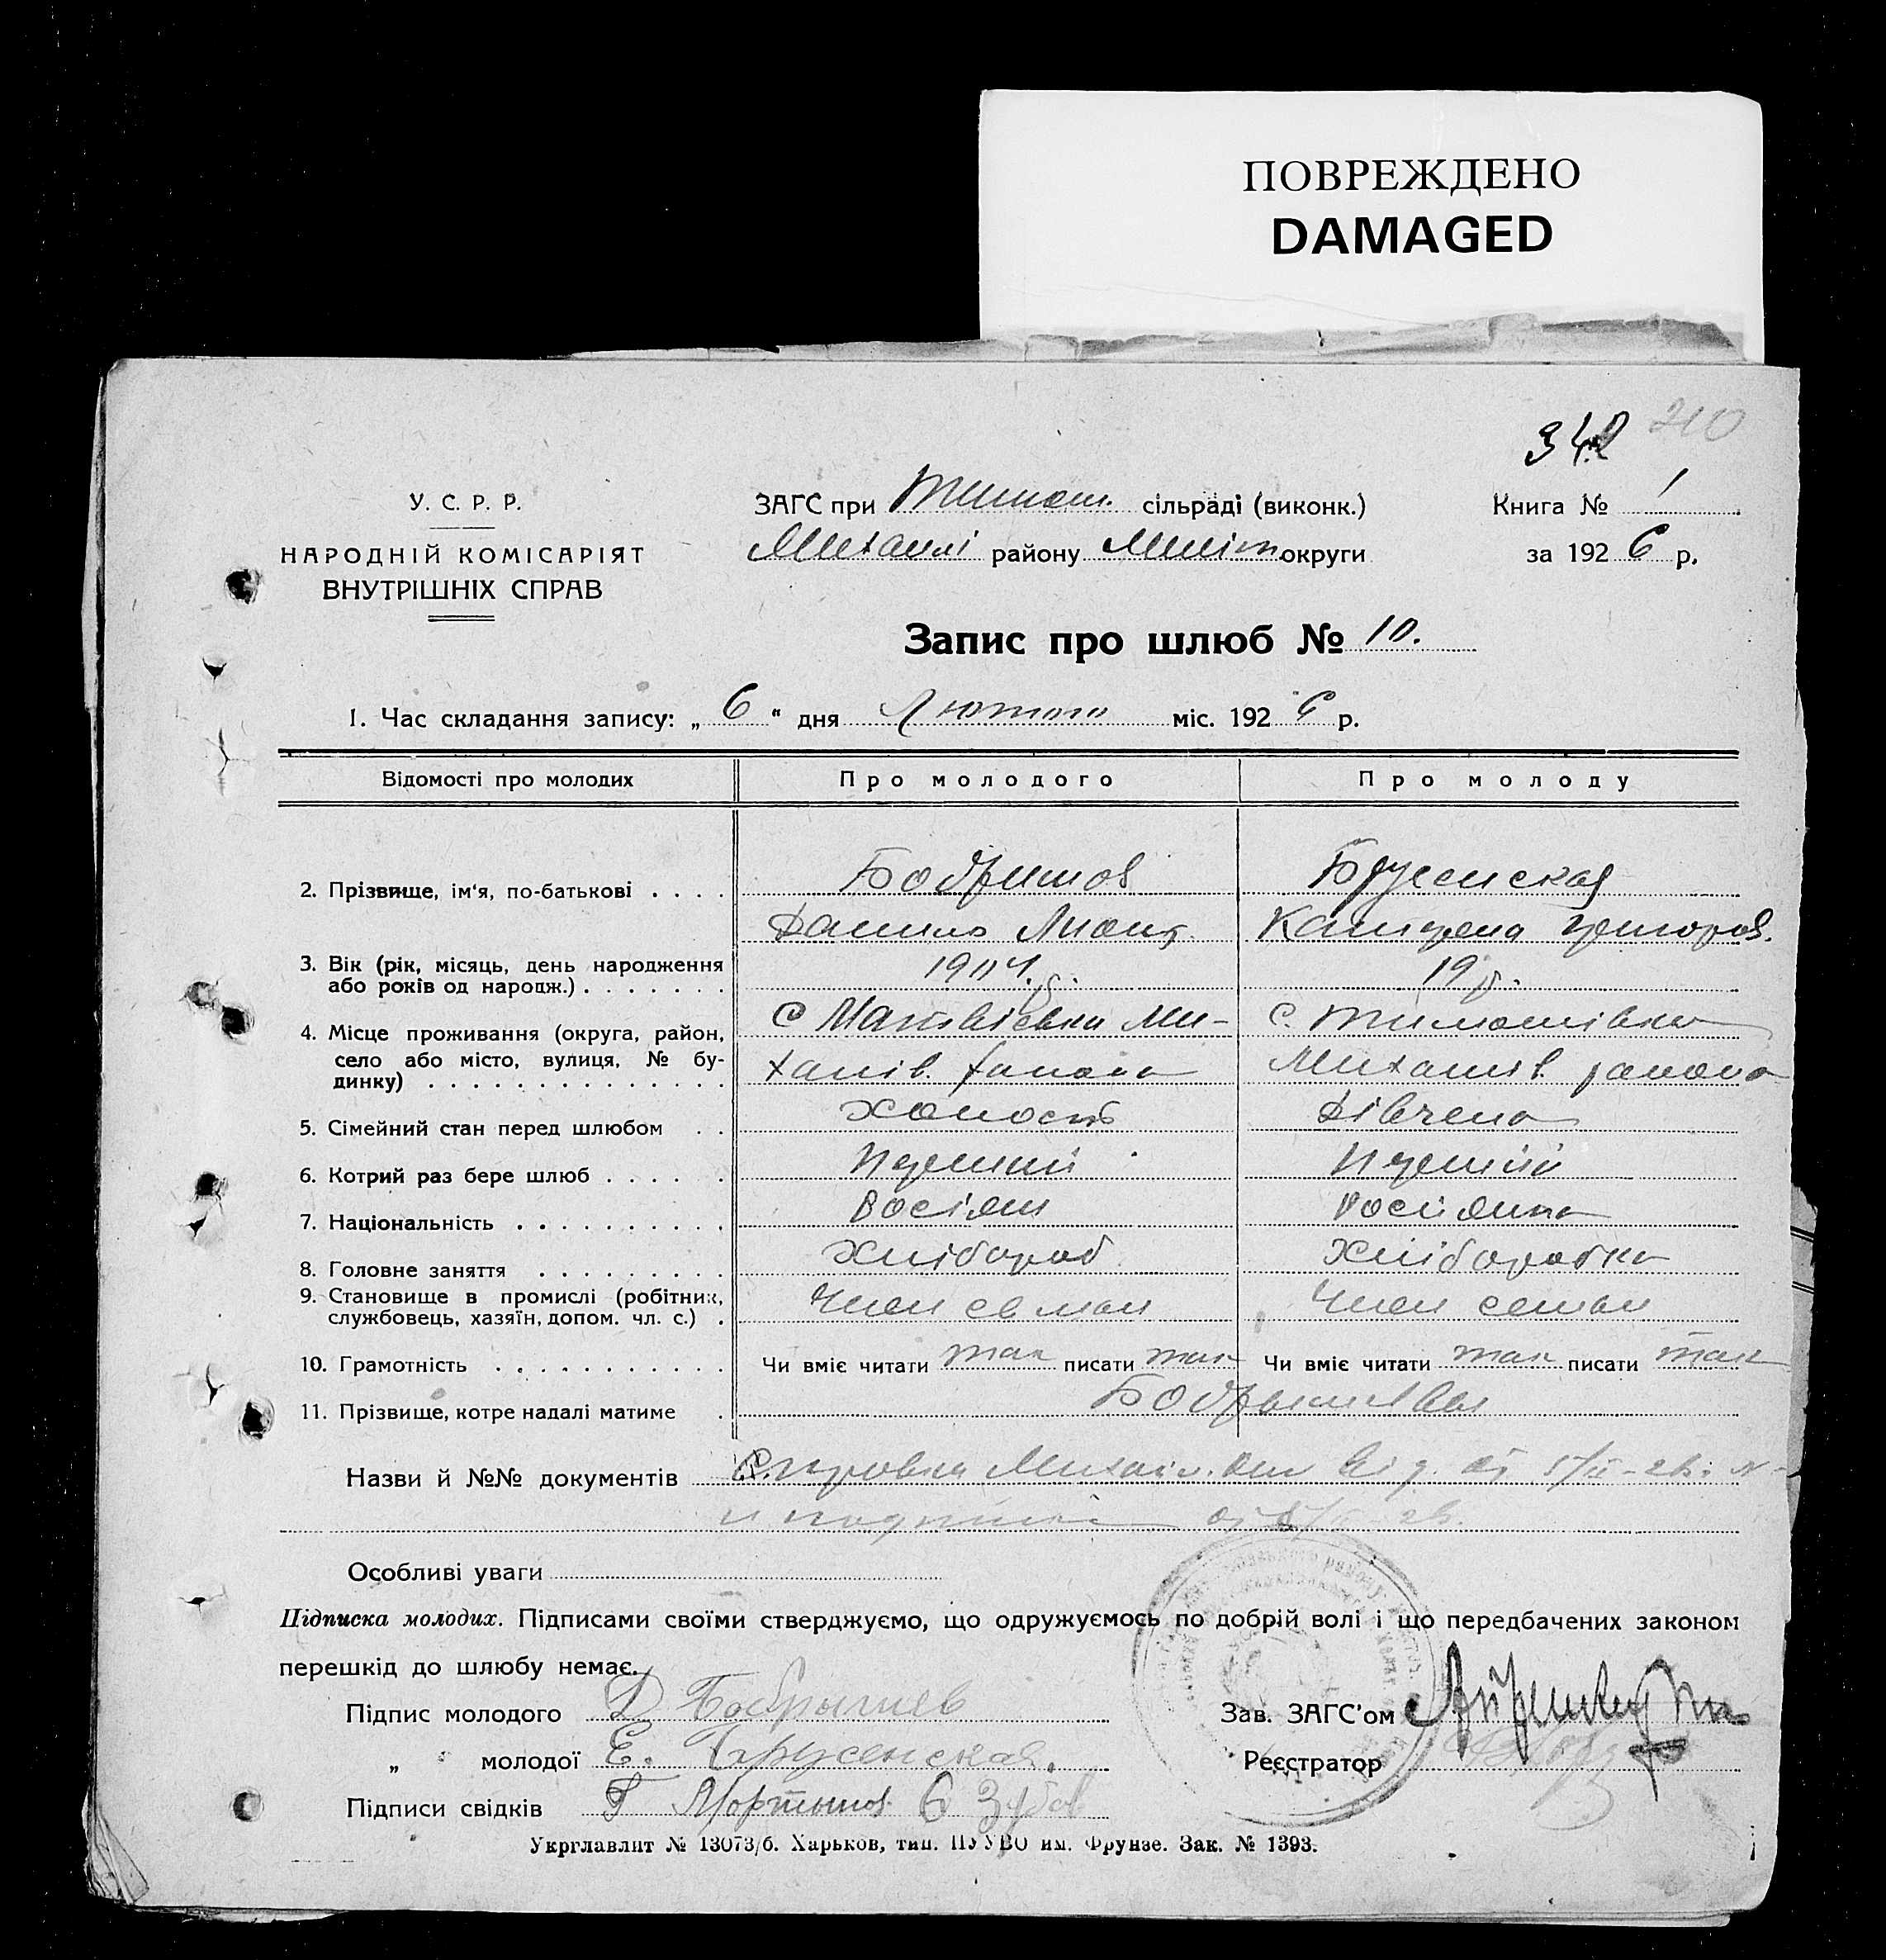 ПОВРЕЖДЕНО
DAMAGED
342 210
У. С. Р. Р.
НАРОДНІЙ КОМІСАРІЯТ
ВНУТРІШНІХ СПРАВ
ЗАГС при Тимош. сільраді (виконк.)
Михайлі району Меліт округи
Книга № 1
за 1926 р.
Запис про шлюб № 10.
1. Час складання запису: „ 6 “ дня Лютого міс. 1926 р.
Відомості про молодих Про молодого Про молоду
2. Прізвище, ім‘я, по-батькові . . . . Бобришов Брусенская
Данило Катерена Григоров.
3. Вік (рік, місяць, день народження
або років од народж.) . . . . . . . 1904 р. 19 р.
4. Місце проживання (округа, район,
село або місто, вулиця, № бу-
динку) . . . . . . . . . . . . . .
с Матвієвки Ми- с. Тимошівка
хайлів. району Михайлів. району
5. Сімейний стан перед шлюбом . . Холост Дівчена
6. Котрий раз бере шлюб . . . . . . Перший Перший
7. Національність . . . . . . . . . . Росіян Росіянка
8. Головне заняття . . . . . . . . . Хлібороб Хліборобка
9. Становище в промислі (робітник,
службовець, хазяїн, допом. чл. с.) . Член семьи Член семьи
10. Грамотність . . . . . . . . . . . Чи вміє читати так писати так Чи вміє читати так писати так
11. Прізвище, котре надалі матиме . Бобришева
Назви й №№ документів Справка Михайл. від. 5/II-26
5/II-26.
Особливі уваги
Підписка молодих. Підписами своїми стверджуємо, що одружуємось по добрій волі і що передбачених законом
перешкід до шлюбу немає.
Підпис молодого Д Бобрышев
„ молодої Е. Брусенская.
Підписи свідків Г Мортынов С Зубов
Зав. ЗАГС’ом
Реєстратор
Укрглавлит № 13073/б. Харьков, тип. ПУУВО им. Фрунзе. Зак. № 1393.